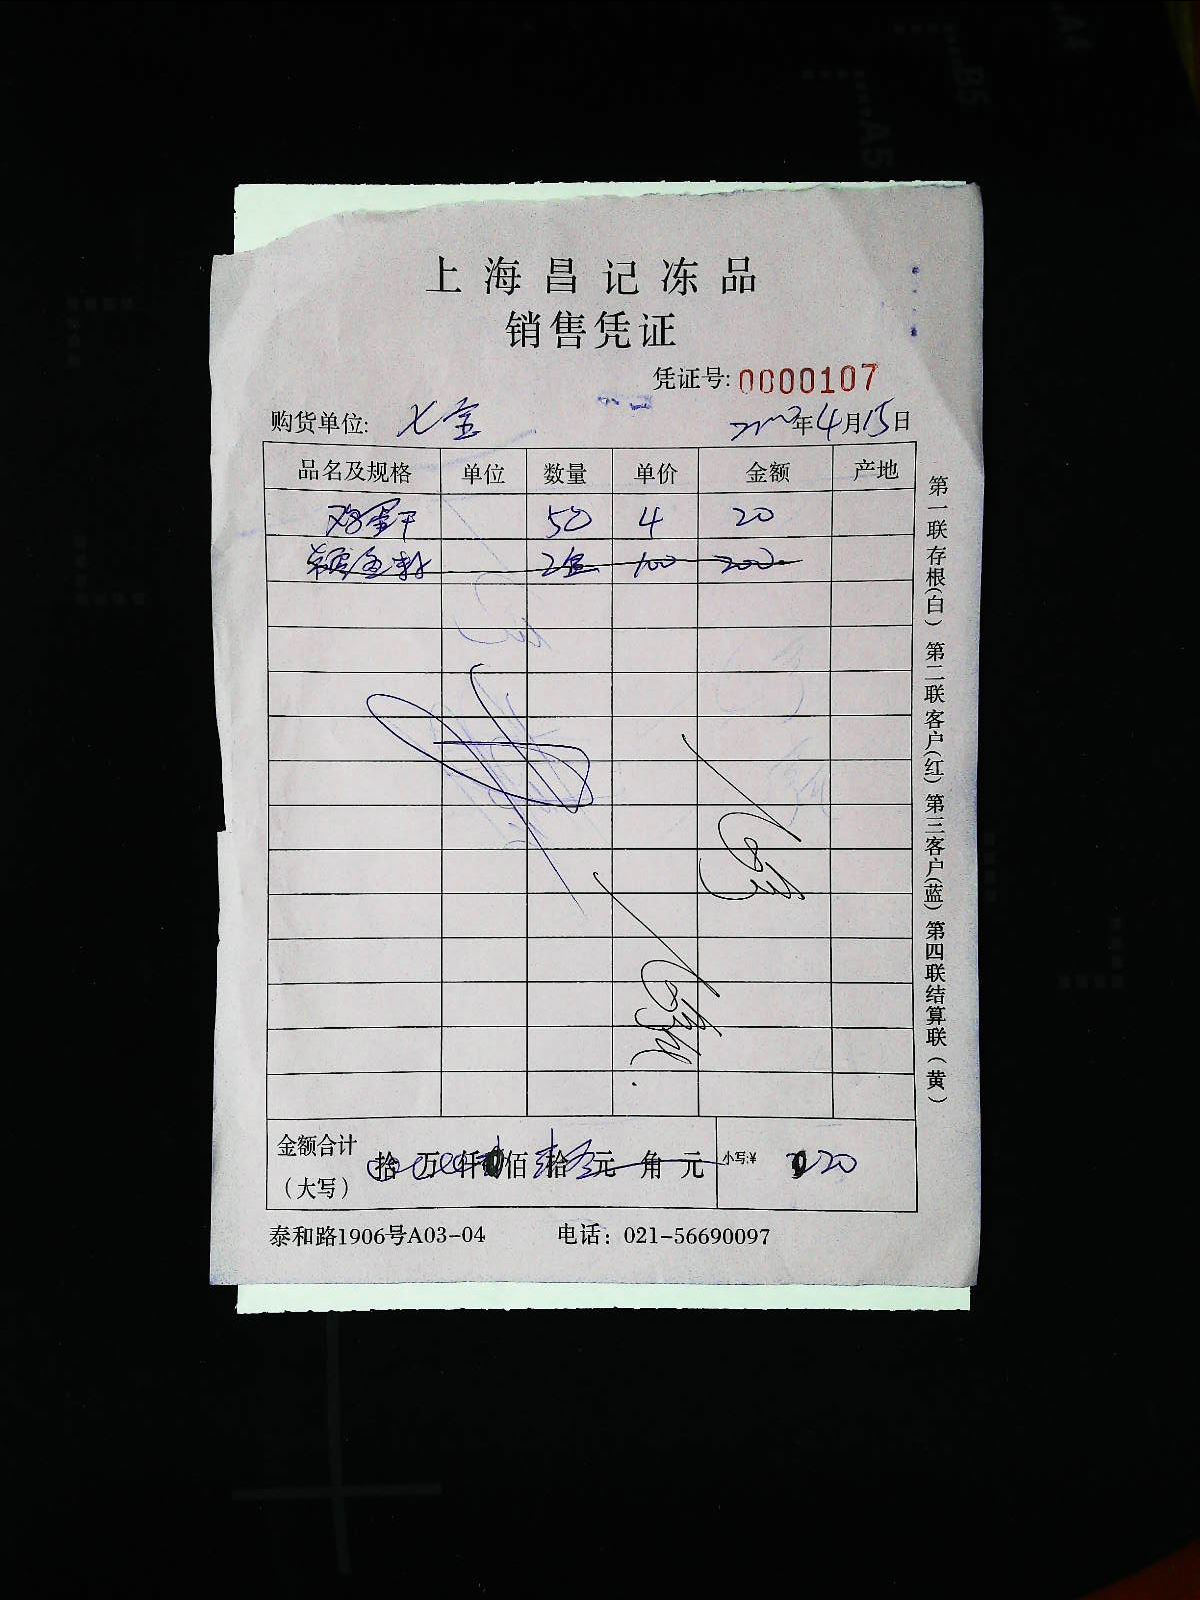 上海昌记冻品
销售凭证
凭证号: 0000107
购货单位: 七宝
年4月15日
品名及规格 单位 数量 单价 金额 产地
鸡蛋干 50 4 20
2盒 100 200
金额合计
(大写)
拾 万 仟 佰 拾 元 角 元 小写:¥ 20
泰和路1906号A03-04 电话: 021-56690097
第一联存根(白) 第二联客户(红) 第三客户(蓝) 第四联结算联(黄)
A4
B5
A5